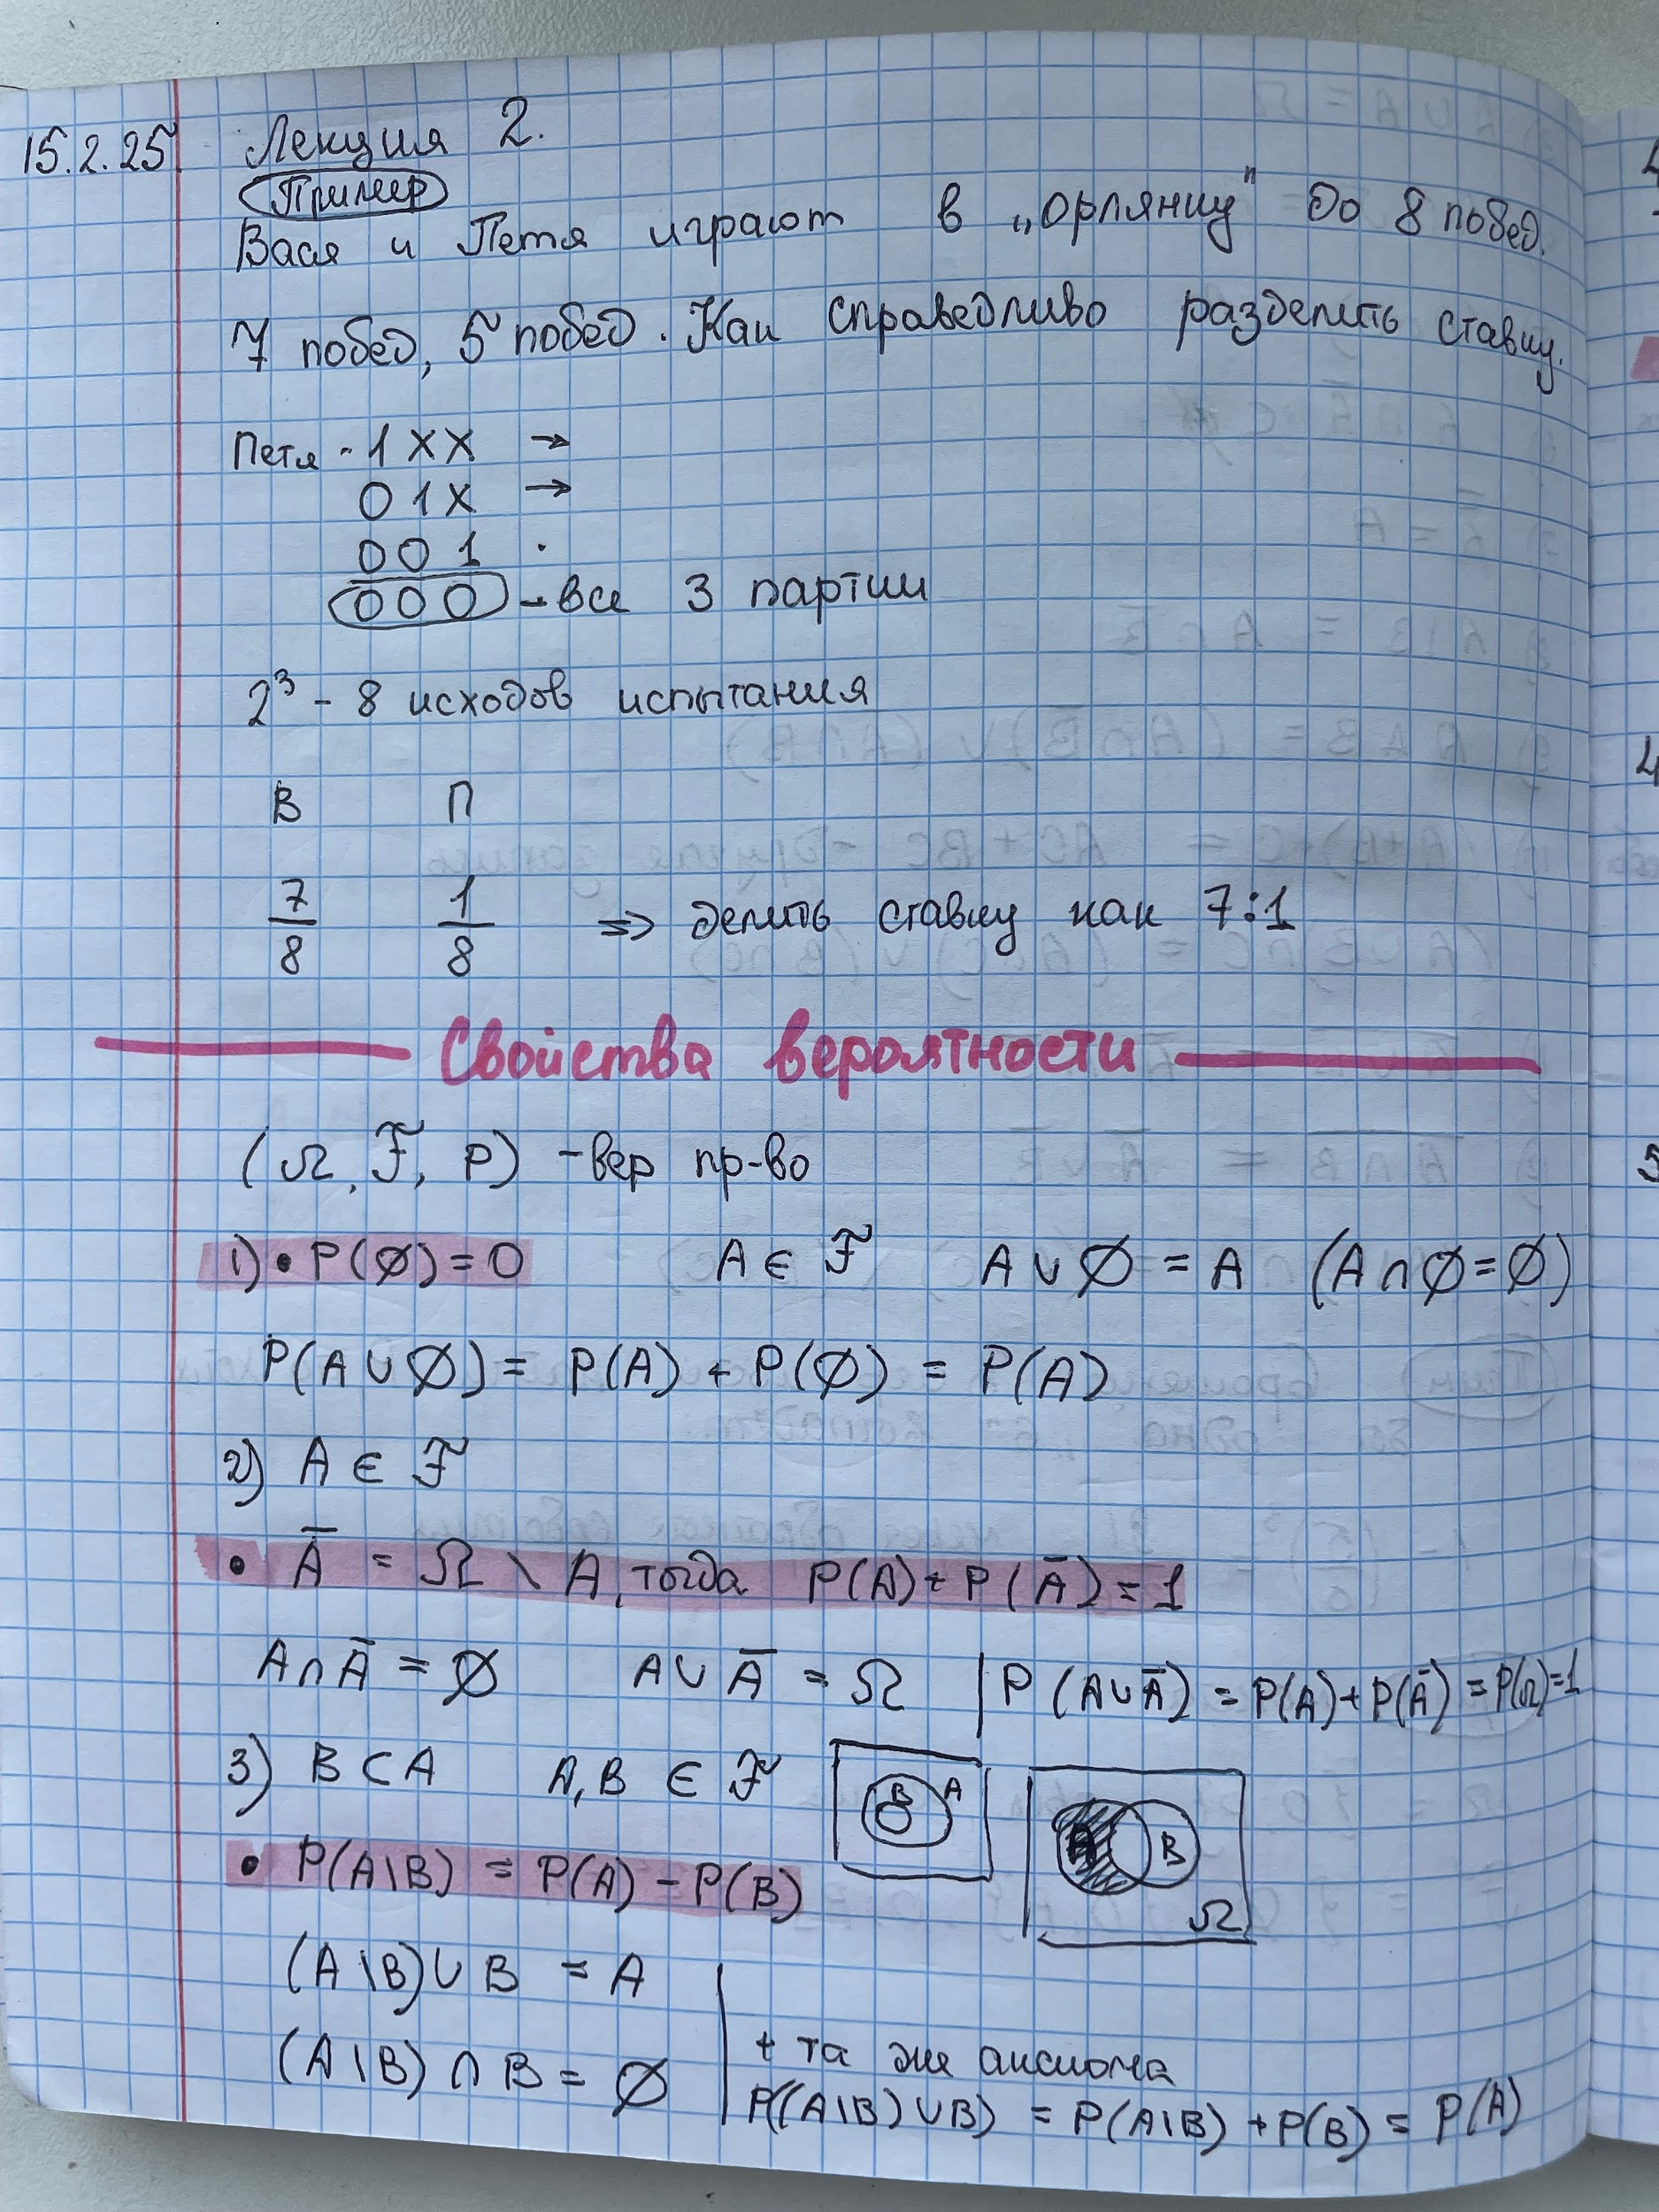 15.2.25 Лекция 2.
Пример
Вася и Петя играют в „орлянку" до 8 побед.
7 побед, 5 побед. Как справедливо разделить ставку.
Петя - 1 X X →
0 1 X →
0 0 1 .
0 0 0 - все 3 партии
2³ - 8 исходов испытания
В П
7/8 1/8 => делить ставку как 7:1
Свойства вероятности
(Ω, ℱ, P) - вер пр-во
1) • P(∅) = 0 A ∈ ℱ A ∪ ∅ = A (A ∩ ∅ = ∅)
P(A ∪ ∅) = P(A) + P(∅) = P(A)
2) A ∈ ℱ
• Ā = Ω \ A, тогда P(A) + P(Ā) = 1
A ∩ Ā = ∅ A ∪ Ā = Ω | P(A ∪ Ā) = P(A) + P(Ā) = P(Ω) = 1
3) B ⊂ A A, B ∈ ℱ
B A
A B
Ω
• P(A\B) = P(A) - P(B)
(A\B) ∪ B = A
(A\B) ∩ B = ∅
+ та же аксиома
P((A\B) ∪ B) = P(A\B) + P(B) = P(A)